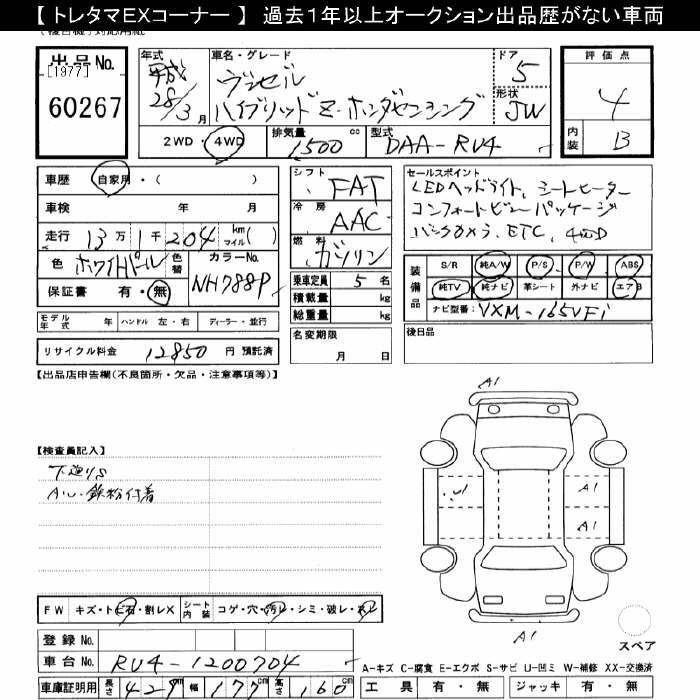 【トレタマEXコーナー】 過去1年以上オークション出品歴がない車両
出品No.
[1977]
60267
年式
平成
28/3月
車名・グレード
ヴェゼル
ハイブリッドZ・ホンダセンシング
ドア
5
形状
5W
2WD・4WD
排気量
1500 cc
型式
DAA-RU4
評価点
4
内装
B
車歴 自家用・( )
車検 年 月
走行 13万1千204 km マイル( )
色 ホワイトパール 色替
カラーNo.
NH788P
保証書 有・無
モデル年式 年 ハンドル 左・右 ディーラー・並行
リサイクル料金 12850 円 預託済
シフト
FAT
冷房
AAC
燃料
ガソリン
乗車定員 5 名
積載量 kg
総重量 kg
名変期限
月 日
セールスポイント
LEDヘッドライト、シートヒーター
コンフォートビューパッケージ
バックカメラ、ETC、4WD
装備品
S/R 純A/W P/S P/W ABS
純TV 純ナビ 革シート 外ナビ エアB
ナビ型番: VXM-165VFi
後日品
【出品店申告欄(不良箇所・欠品・注意事項等)】
【検査員記入】
下廻りS
A.U.鉄粉付着
A1
A1
A1
U
A1
FW キズ・トビ石・割レX
シート内装 コゲ・穴・汚レ・シミ・破レ・スレ
登録No.
車台No. RU4-1200704
車庫証明用 長さ 429 cm 幅 177 cm 高さ 160 cm
スペア
A-キズ C-腐食 E-エクボ S-サビ U-凹ミ W-補修 XX-交換済
工具 有・無 ジャッキ 有・無